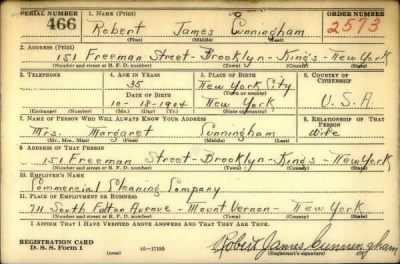 SERIAL NUMBER 1. NAME (Print) ORDER NUMBER
466 Robert James Cunningham 2573
(First) (Middle) (Last)
2. ADDRESS (Print)
151 Freeman Street-Brooklyn-King's-New York
(Number and street or R. F. D. number) (Town) (County) (State)
3. TELEPHONE 4. AGE IN YEARS 5. PLACE OF BIRTH 6. COUNTRY OF CITIZENSHIP
35 New York City
(Town or county)
DATE OF BIRTH
10-18-1904 New York U.S.A.
(Exchange) (Number) (Mo.) (Day) (Yr.) (State or country)
7. NAME OF PERSON WHO WILL ALWAYS KNOW YOUR ADDRESS 8. RELATIONSHIP OF THAT PERSON
Mrs. Margaret Cunningham Wife
(Mr., Mrs., Miss) (First) (Middle) (Last)
9. ADDRESS OF THAT PERSON
151 Freeman Street-Brooklyn-Kings-New York
(Number and street or R. F. D. number) (Town) (County) (State)
10. EMPLOYER'S NAME
Commercial Cleaning Company
11. PLACE OF EMPLOYMENT OR BUSINESS
711 South Fulton Avenue-Mount Vernon-New York
(Number and street or R. F. D. number) (Town) (County) (State)
I AFFIRM THAT I HAVE VERIFIED ABOVE ANSWERS AND THAT THEY ARE TRUE.
REGISTRATION CARD
D. S. S. Form 1 (over) 16-17105 Robert James Cunningham
(Registrant's signature)